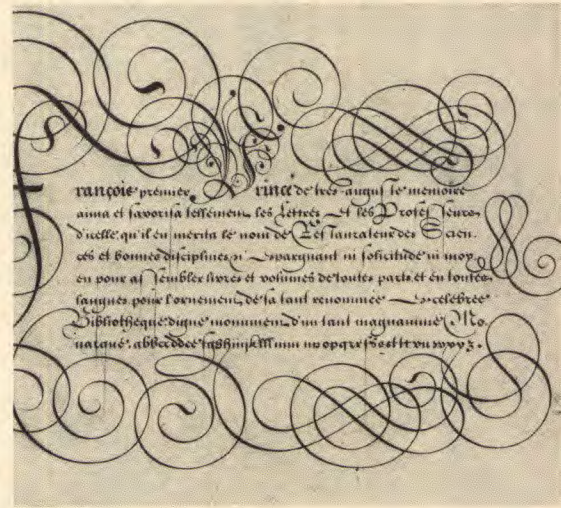 François premier Prince de tres auguste memoire
aima et favorisa tellement les Lettres et les Professeurs
d'icelle qu'il en merita le nom de Restaurateur des Scien-
ces et bonnes disciplines n'espargnant ni solicitude ni moy-
en pour assembler livres et volumes de toutes parts et en toutes
langues pour l'ornement de sa tant renommée
Bibliotheque digne monument d'un tant magnanime Mo-
narque.